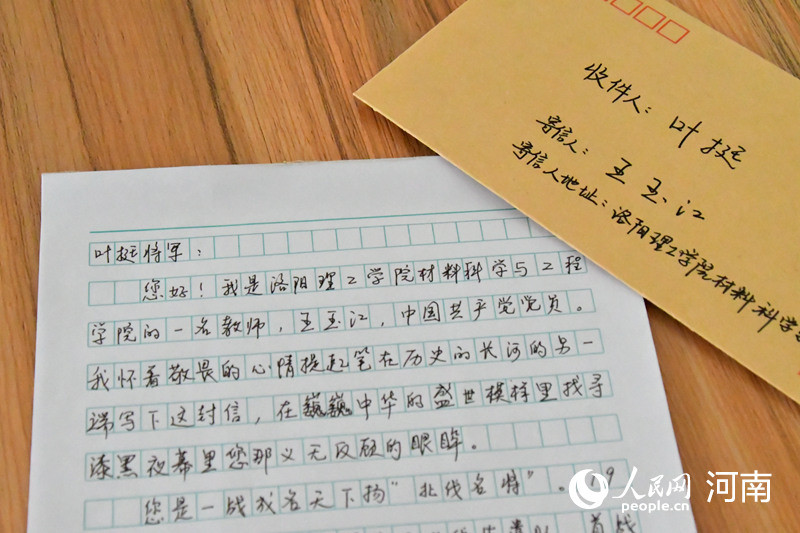 收件人：叶挺
寄信人：王玉江
寄信人地址：洛阳理工学院材料科学
叶挺将军：
您好！我是洛阳理工学院材料科学与工程
学院的一名教师，王玉江，中国共产党党员。
我怀着敬畏的心情提起笔在历史的长河的另一
端写下这封信，在巍巍中华的盛世模样里找寻
漆黑夜幕里您那义无反顾的眼眸。
您是一战成名天下扬"北伐名将"。19
首战
人民网 河南
people.cn